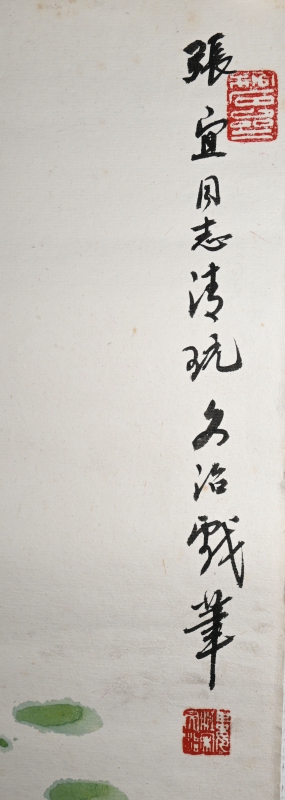 張宜同志清玩文治戲筆